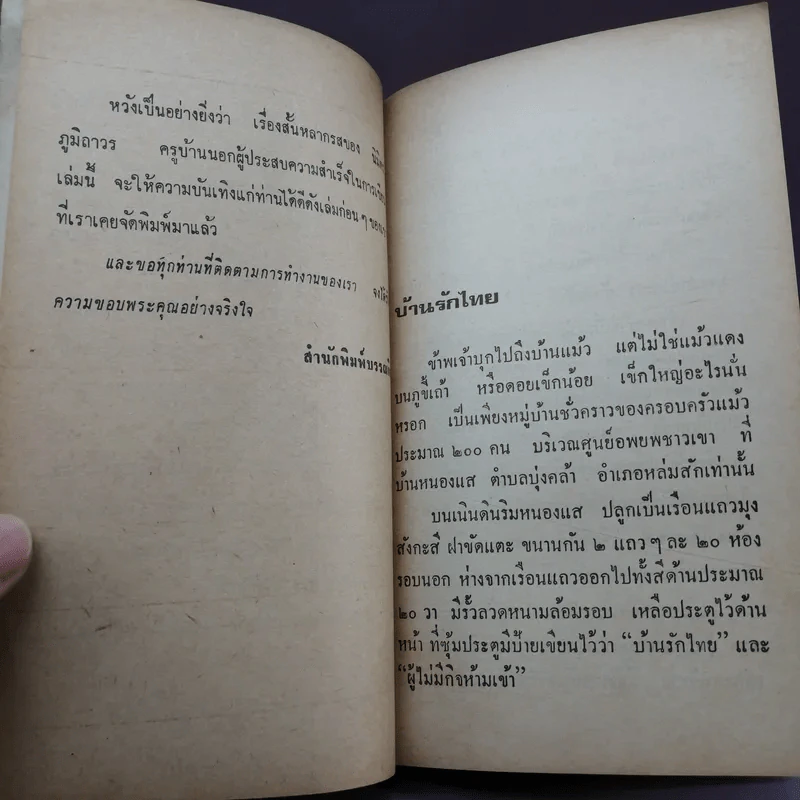 หวังเป็นอย่างยิ่งว่า เรื่องสั้นหลากรสของ
ภูมิถาวร ครูบ้านนอกผู้ประสบความสำเร็จในการ
เล่มนี้ จะให้ความบันเทิงแก่ท่านได้ดีดังเล่มก่อนๆ ของ
ที่เราเคยจัดพิมพ์มาแล้ว
และขอทุกท่านที่ติดตามการทำงานของเรา
ความขอบพระคุณอย่างจริงใจ
สำนักพิมพ์
บ้านรักไทย
ข้าพเจ้าบุกไปถึงบ้านแม้ว แต่ไม่ใช่แม้วแดง
บนภูขี้เถ้า หรือดอยเข็กน้อย เข็กใหญ่อะไรนั่น
หรอก เป็นเพียงหมู่บ้านชั่วคราวของครอบครัวแม้ว
ประมาณ ๒๐๐ คน บริเวณศูนย์อพยพชาวเขา ที่
บ้านหนองแส ตำบลบุ่งคล้า อำเภอหล่มสักเท่านั้น
บนเนินดินริมหนองแส ปลูกเป็นเรือนแถวมุง
สังกะสี ฝาขัดแตะ ขนานกัน ๒ แถวๆ ละ ๒๐ ห้อง
รอบนอก ห่างจากเรือนแถวออกไปทั้งสี่ด้านประมาณ
๒๐ วา มีรั้วลวดหนามล้อมรอบ เหลือประตูไว้ด้าน
หน้า ที่ซุ้มประตูมีป้ายเขียนไว้ว่า “บ้านรักไทย” และ
“ผู้ไม่มีกิจห้ามเข้า”